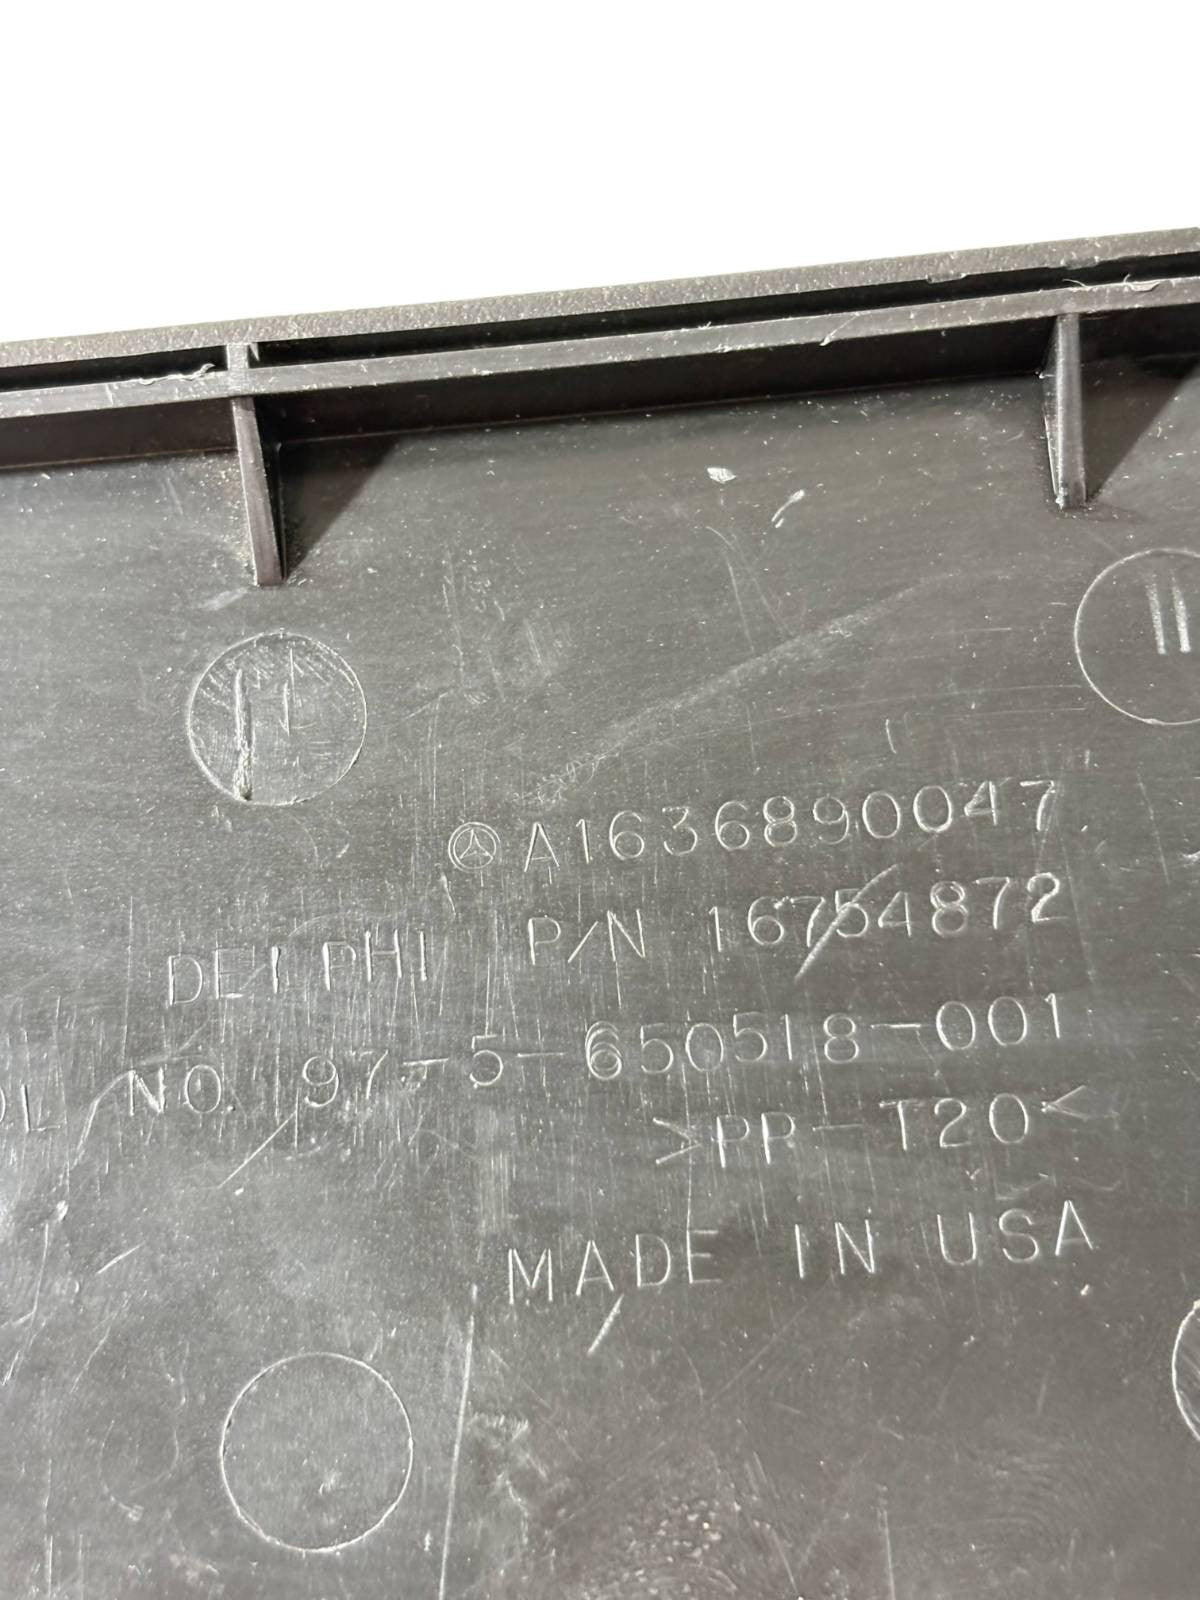 A1636890047
DELPHI P/N 16754872
OL NO. 97-5-650518-001
>PP-T20<
MADE IN USA